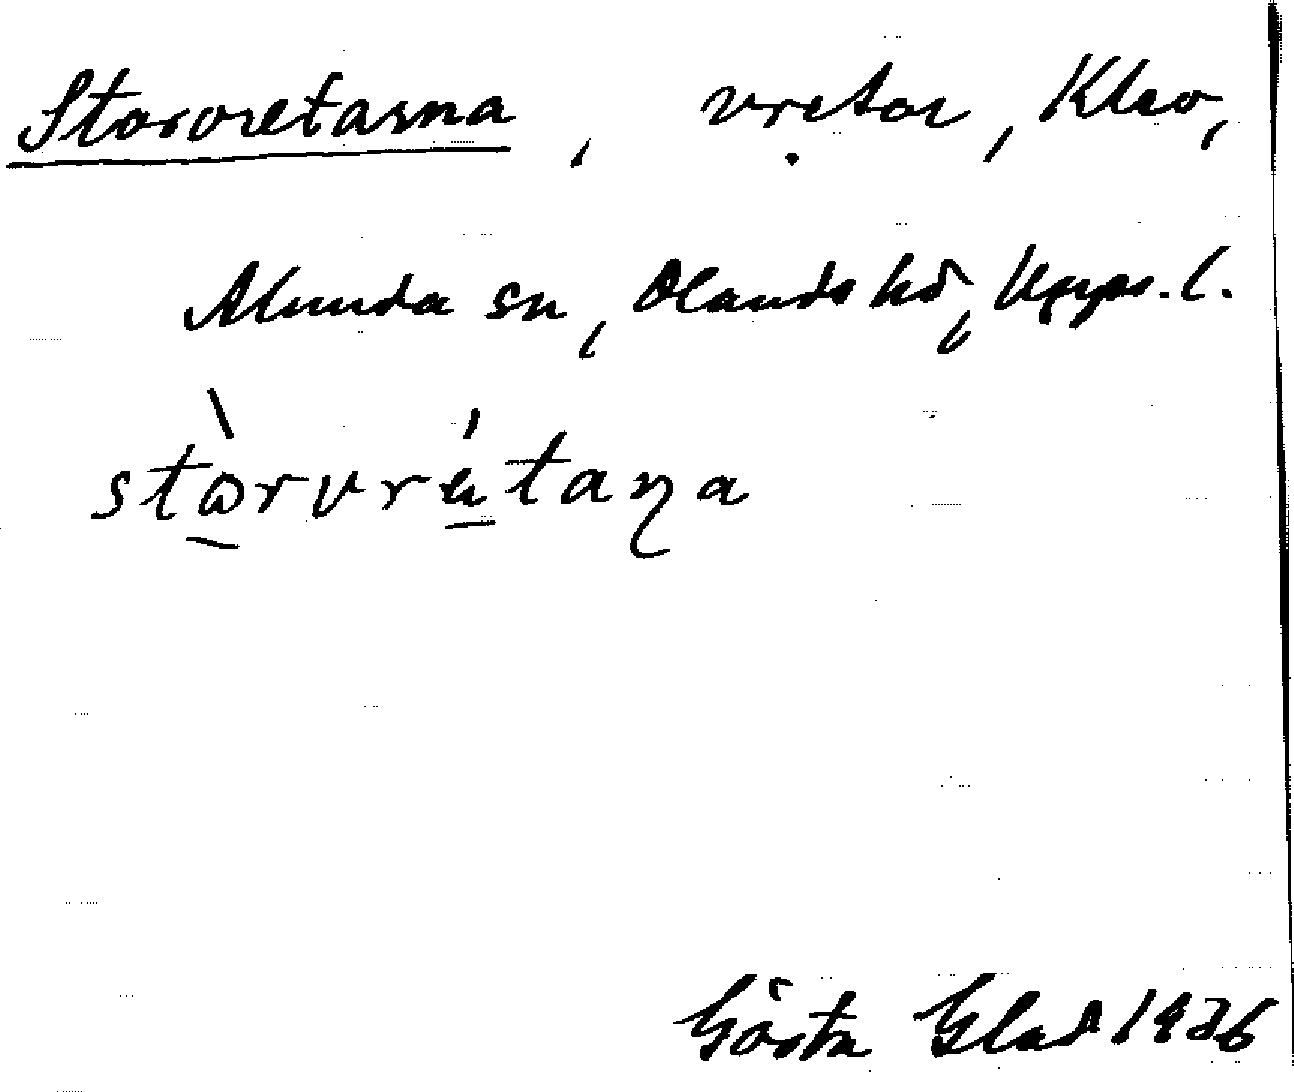 Storvretarna, vretar, Klev,
Alunda sn, Olands hd, Upps. l.
stòrvrétaɳa
Gösta Glad 1936